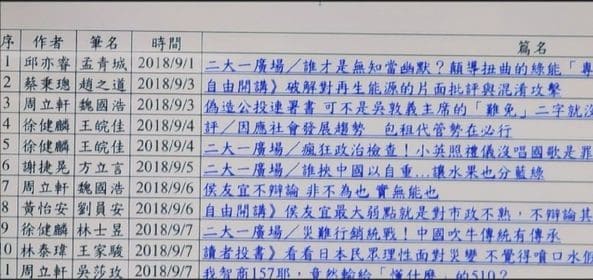 序 作者 筆名 時間 篇名
1 邱亦睿 孟青城 2018/9/1 二大一廣場／誰才是無知當幽默？顛導扭曲的綠能「專
2 蔡秉璁 趙之道 2018/9/3 自由開講》破解對再生能源的片面批評與混淆攻擊
3 周立軒 魏國浩 2018/9/3 偽造公投連署書 可不是吳敦義主席的「難免」二字就
4 徐健麟 王皖佳 2018/9/4 評／因應社會發展趨勢 包租代管勢在必行
5 徐健麟 王皖佳 2018/9/4 二大一廣場／瘋狂政治檢查！小英照禮儀沒唱國歌是罪
6 謝捷晃 方立言 2018/9/5 二大一廣場／誰挾中國以自重…讓水果也分藍綠
7 周立軒 魏國浩 2018/9/6 侯友宜不辯論 非不為也 實無能也
8 黃怡安 劉員安 2018/9/6 自由開講》侯友宜最大弱點就是對市政不熟，不辯論其
9 徐健麟 林士昱 2018/9/7 二大一廣場／災難行銷統戰！中國吹牛傳統有傳承
10 林泰瑋 王家駿 2018/9/7 讀者投書》看看日本民眾理性面對災變 不覺得噴口水假
1 周立軒 吳莎玫 2018/9/7 我智商157耶，竟然輸給「懂什麼」的510？